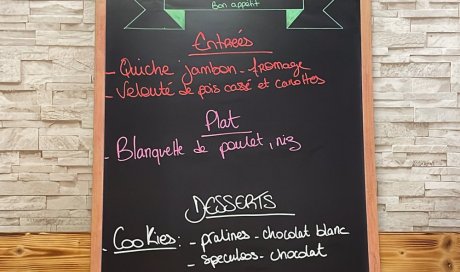 Bon appétit
Entrées
- Quiche jambon - fromage
- Velouté de pois cassé et carottes
Plat
- Blanquette de poulet, riz
DESSERTS
- Cookies : - pralines - chocolat blanc
- speculoos - chocolat